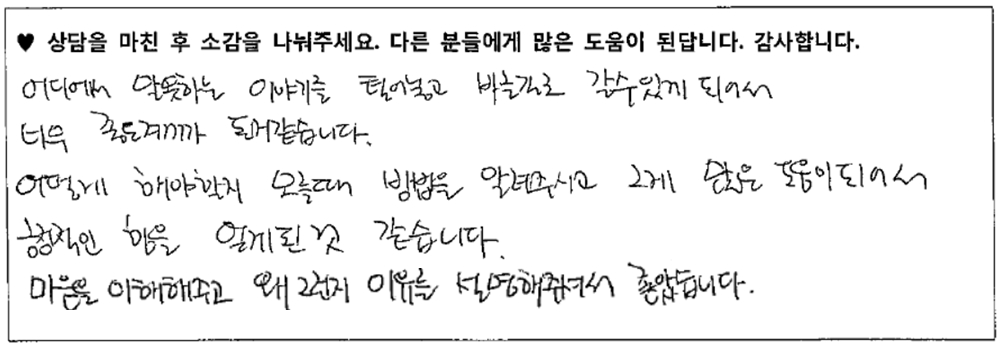 ♥ 상담을 마친 후 소감을 나눠주세요. 다른 분들에게 많은 도움이 된답니다. 감사합니다.
어디에서 말못하는 이야기를 털어놓고 바른길로 갈수있게 되어서
너무 좋은계기가 된거같습니다.
어떻게 해야할지 모를때 방법을 알려주시고 그게 많은 도움이되어서
힘을 얻게된것 같습니다.
마음을 이해해주고 왜 그런지 이유를 설명해줘서 좋았습니다.